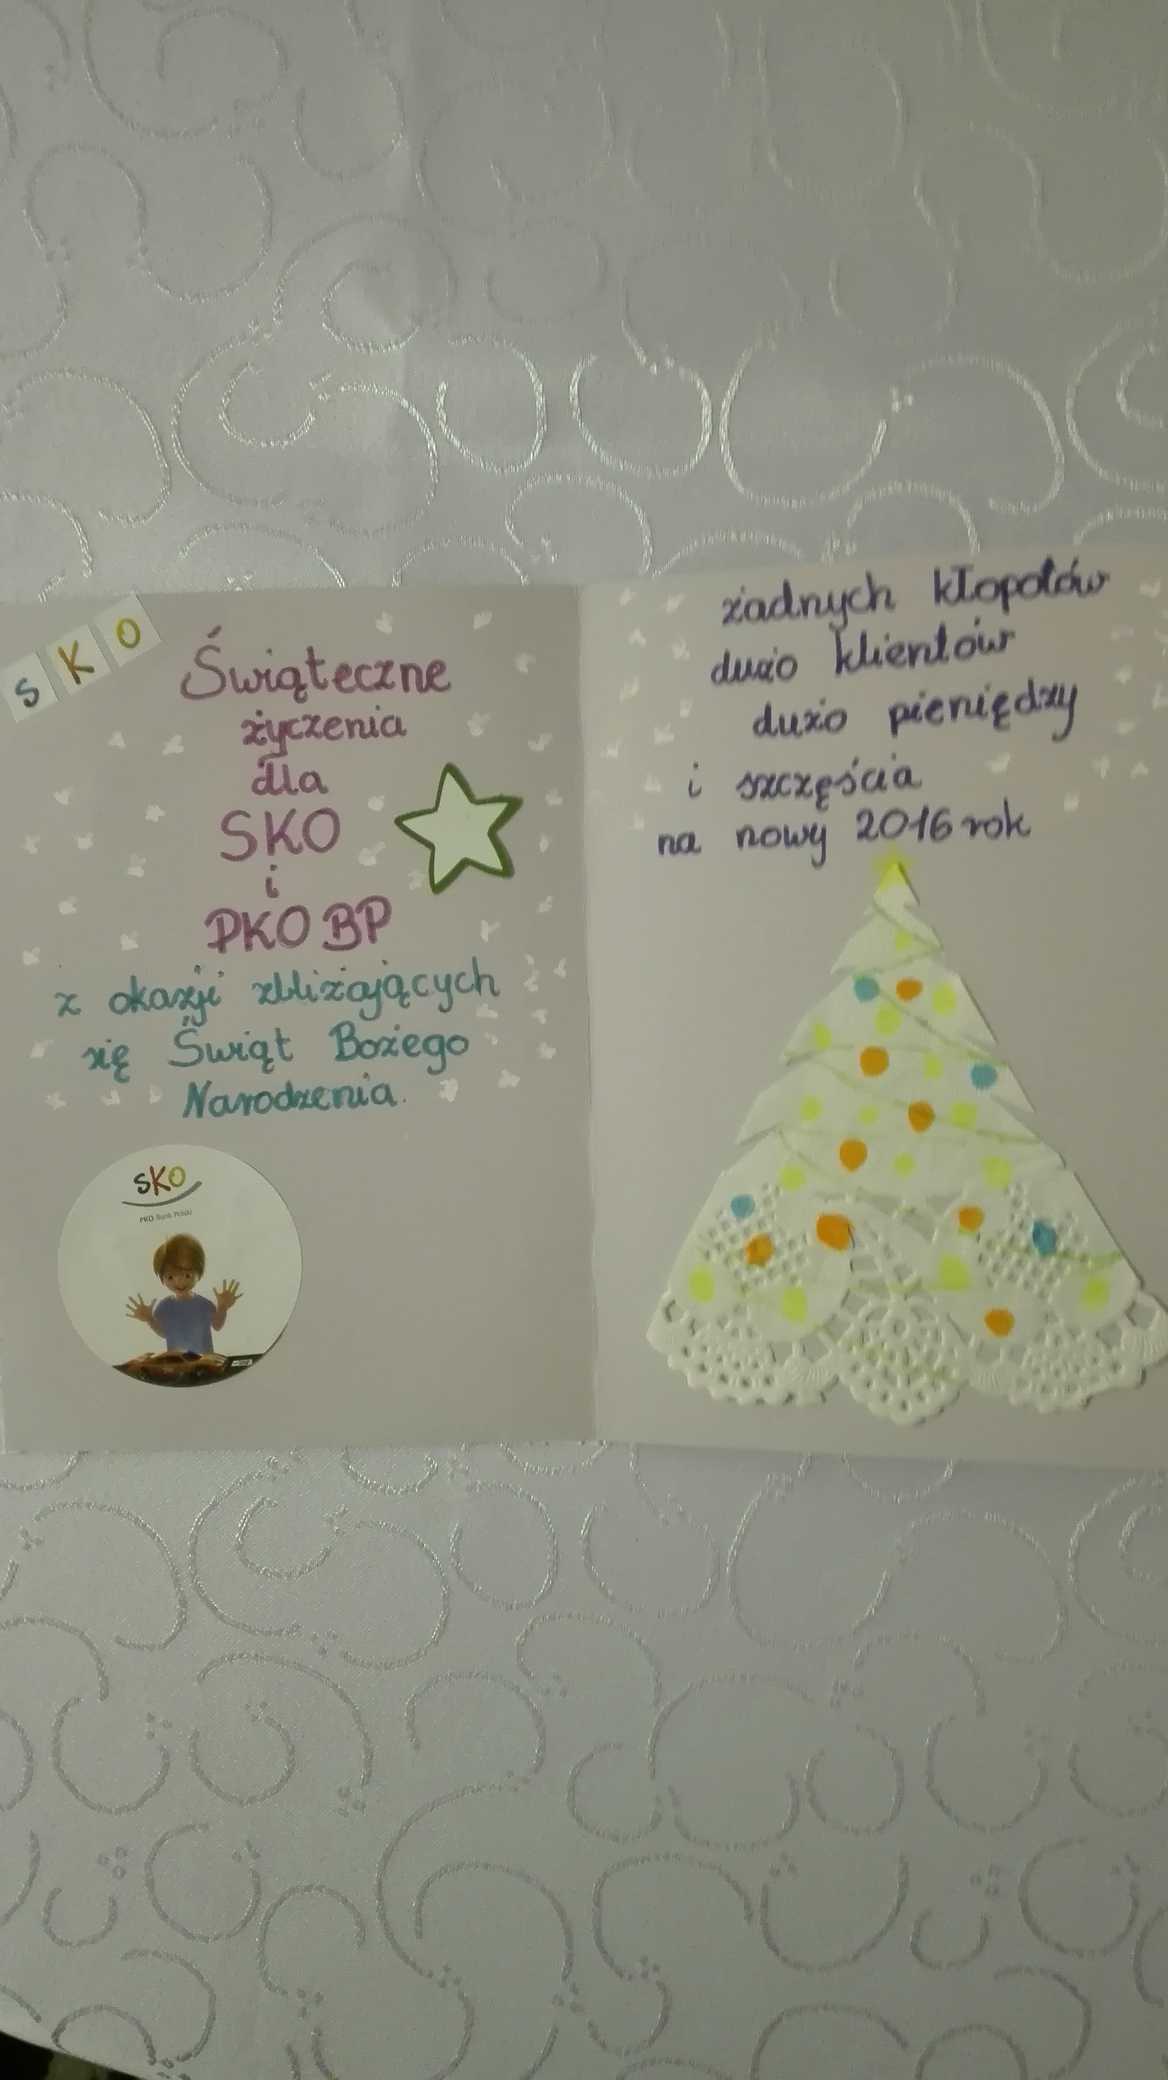 SKO
Świąteczne
życzenia
dla
SKO
i
PKO BP
z okazji zbliżających
się Świąt Bożego
Narodzenia.
SKO
PKO Bank Polski
żadnych kłopotów
dużo klientów
dużo pieniędzy
i szczęścia
na nowy 2016 rok